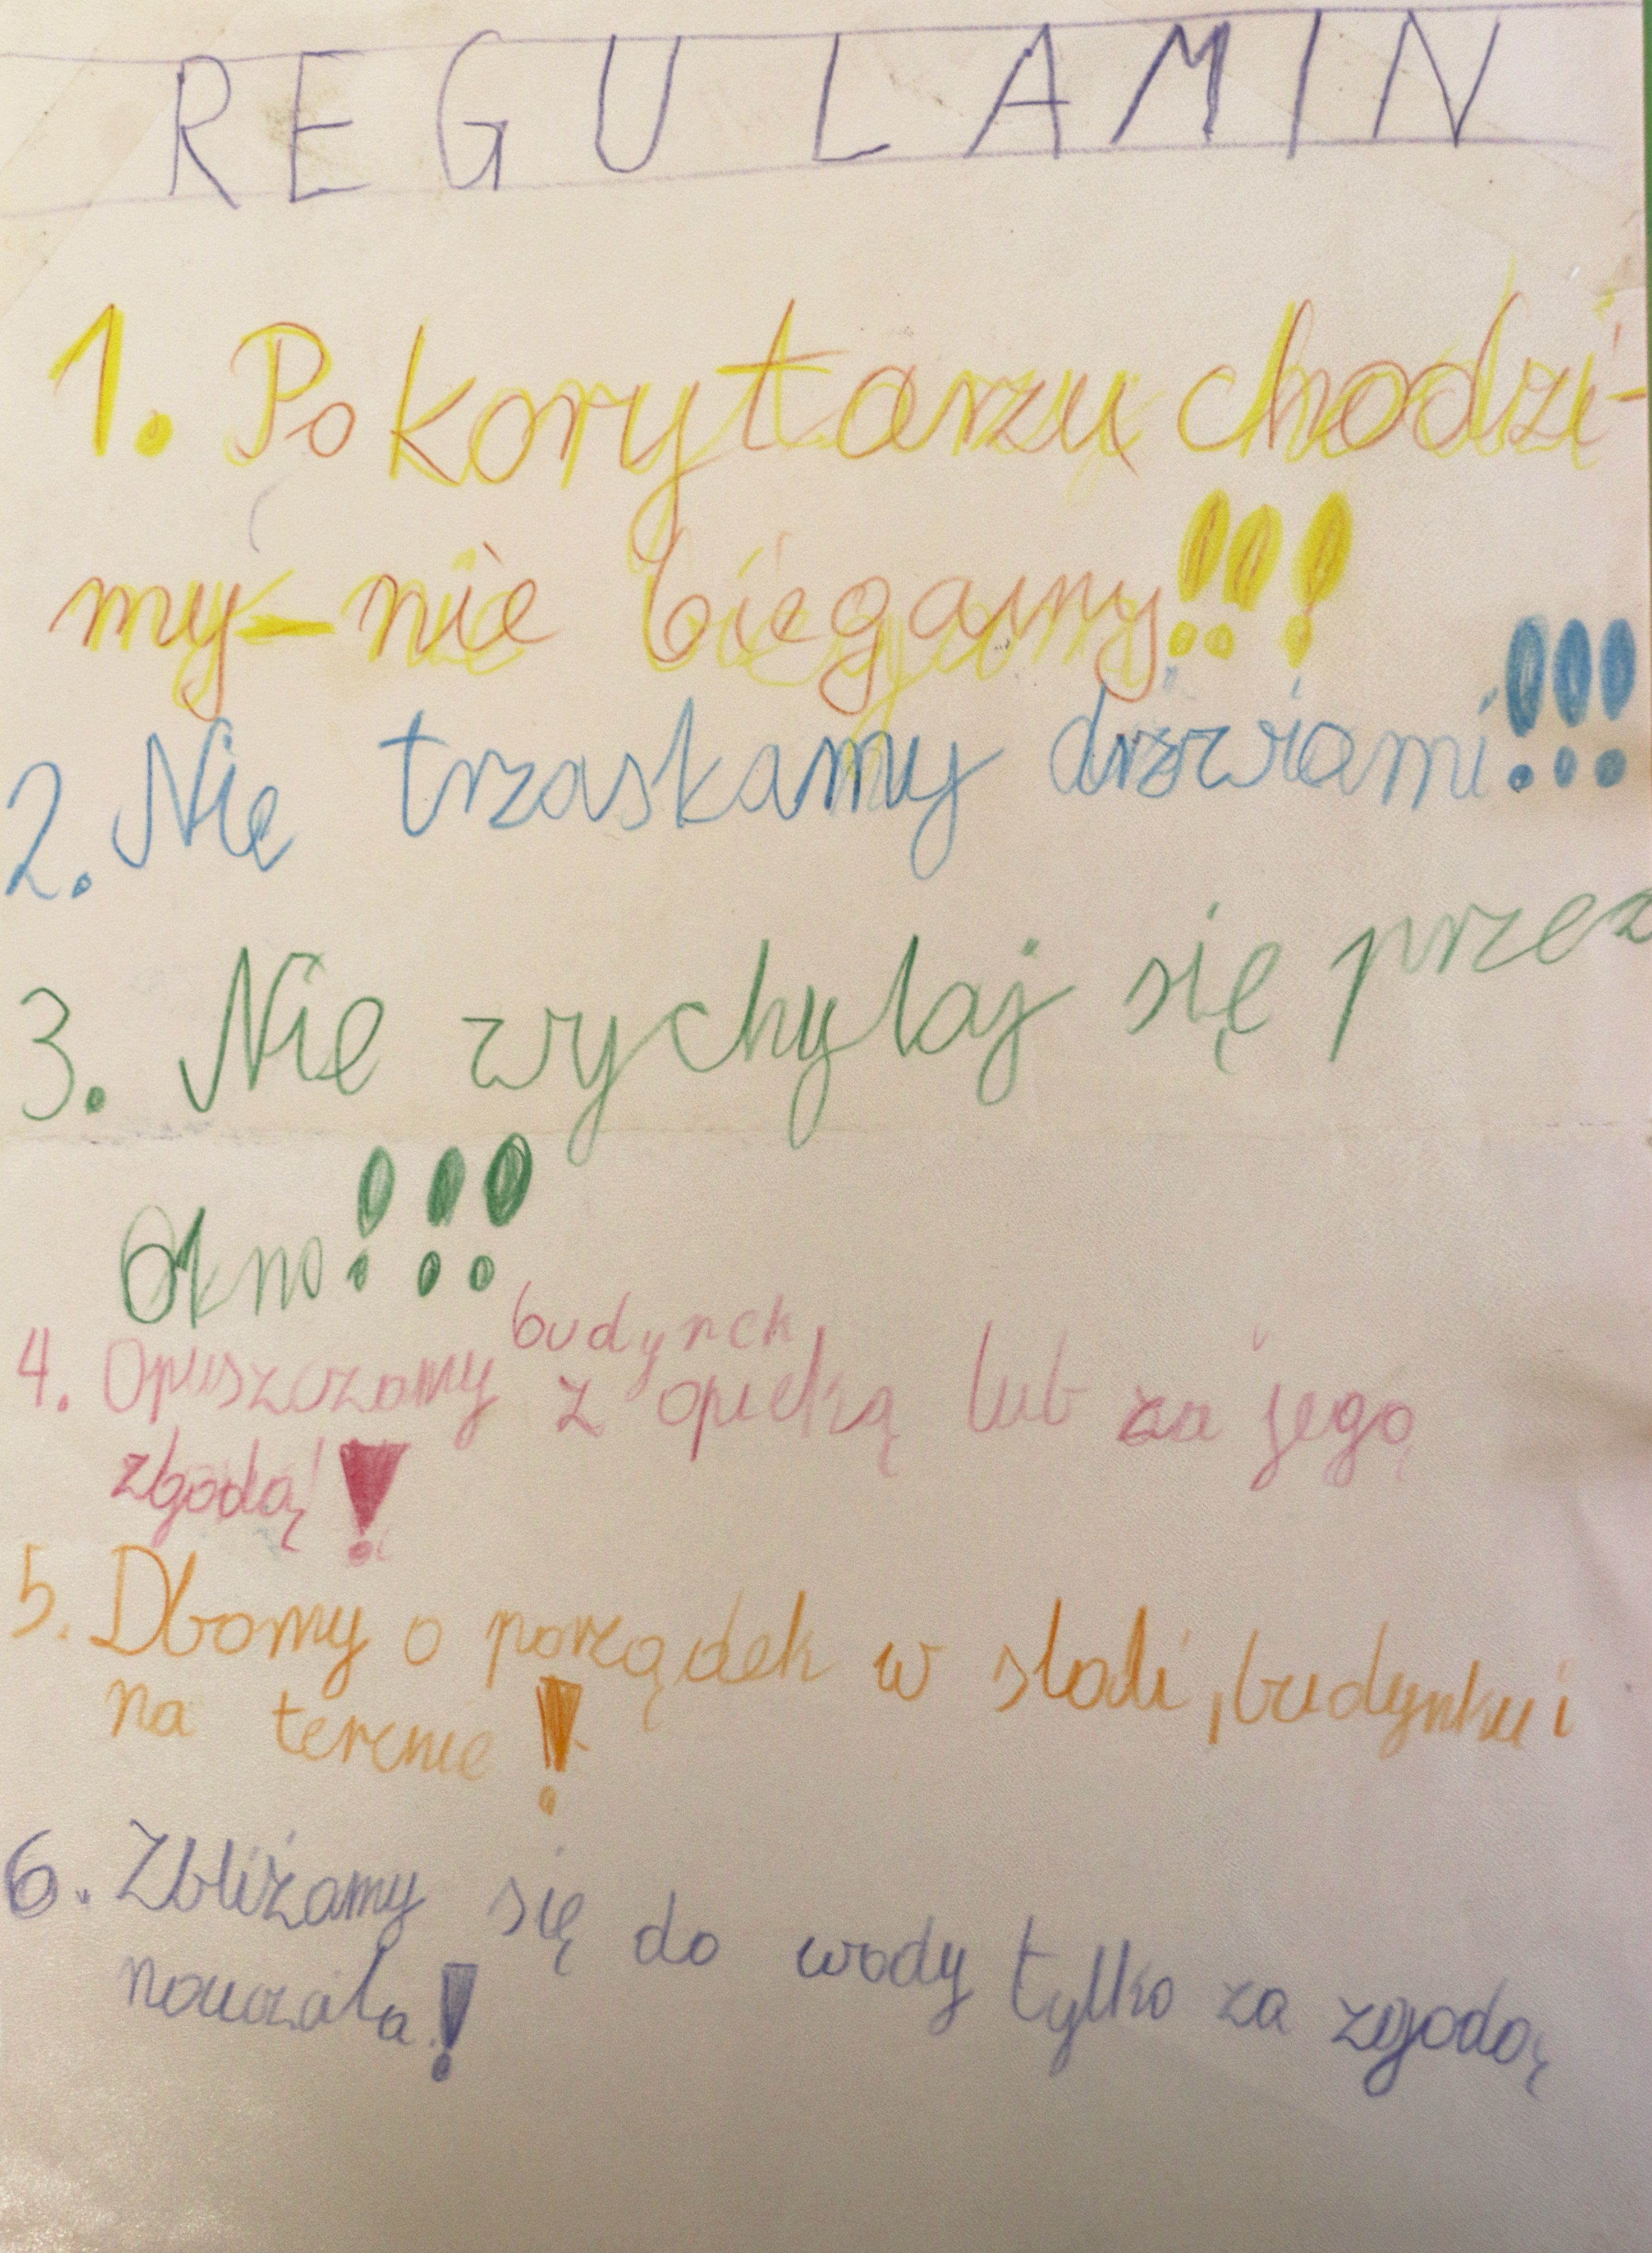 REGULAMIN
1. Po korytarzu chodzi-
my-nie biegamy!!!
2. Nie trzaskamy drzwiami!!!
3. Nie wychylaj się przez
okno!!!
4. Opuszczamy budynek z opieką lub za jego
zgodą!
5. Dbamy o porządek w slodi, budynku i
na terenie!
6. Zbliżamy się do wody tylko za zgodą